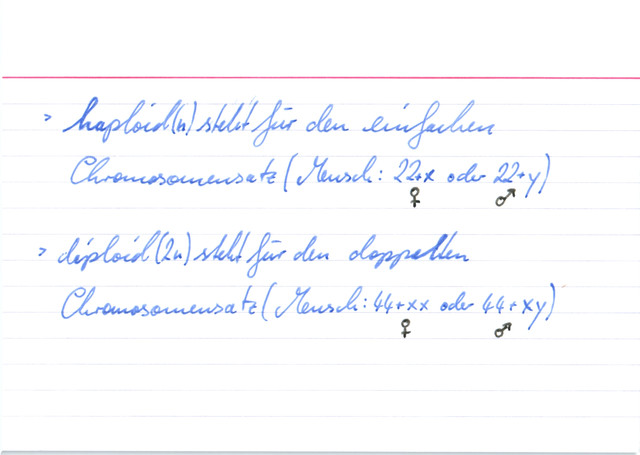 > haploid(n) steht für den einfachen
Chromosomensatz (Mensch: 22+x oder 22+y)
♀ ♂
> diploid(2n) steht für den doppelten
Chromosomensatz (Mensch: 44+xx oder 44+xy)
♀ ♂